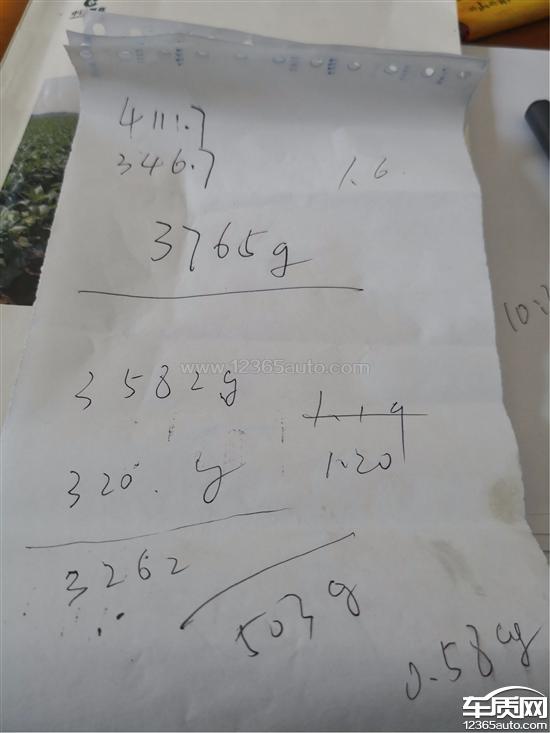 4111.7
346.7
1.6
3765g
www.12365auto.com
3582g
1.19
320. g
1.20
3262
503g
0.58
车质网
12365auto.com